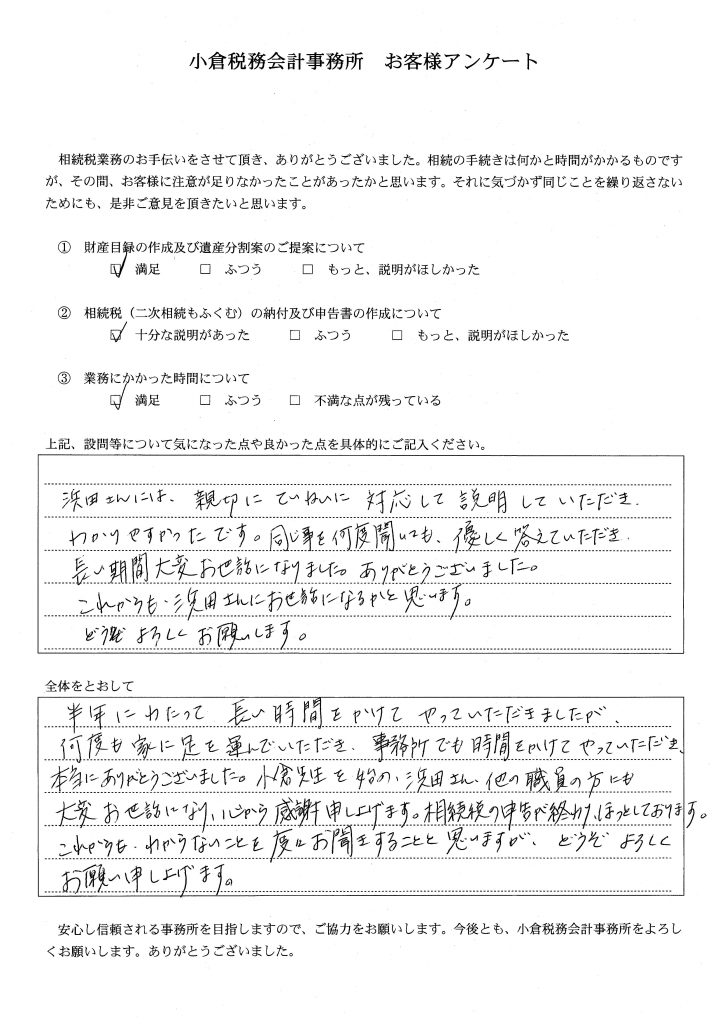 小倉税務会計事務所　お客様アンケート
相続税業務のお手伝いをさせて頂き、ありがとうございました。相続の手続きは何かと時間がかかるものです
が、その間、お客様に注意が足りなかったことがあったかと思います。それに気づかず同じことを繰り返さない
ためにも、是非ご意見を頂きたいと思います。
① 財産目録の作成及び遺産分割案のご提案について
☑ 満足 □ ふつう □ もっと、説明がほしかった
② 相続税（二次相続もふくむ）の納付及び申告書の作成について
☑ 十分な説明があった □ ふつう □ もっと、説明がほしかった
③ 業務にかかった時間について
☑ 満足 □ ふつう □ 不満な点が残っている
上記、設問等について気になった点や良かった点を具体的にご記入ください。
浜田さんには、親切に ていねいに 対応して 説明していただき、
わかりやすかったです。同じ事を何度聞いても、優しく答えていただき、
長い期間大変お世話になりました。ありがとうございました。
これからも、浜田さんにお世話になるかと思います。
どうぞ よろしく お願いします。
全体をとおして
半年にわたって 長い時間をかけて やっていただきましたが、
何度も家に足を運んでいただき、事務所でも時間をかけてやっていただき、
本当にありがとうございました。小倉先生を始め、浜田さん、他の職員の方にも
大変お世話になり、心から感謝申し上げます。相続税の申告が終わり、ほっとしております。
これからも、わからないことを度々お聞きすることと思いますが、どうぞ よろしく
お願い申し上げます。
安心し信頼される事務所を目指しますので、ご協力をお願いします。今後とも、小倉税務会計事務所をよろし
くお願いします。ありがとうございました。